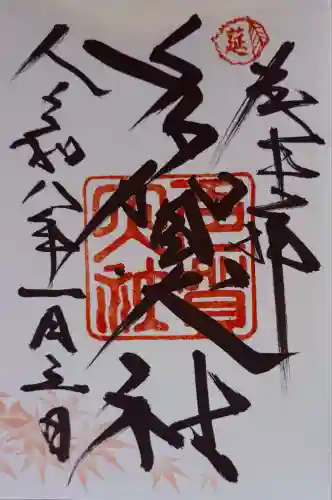 奉拝
延
多賀大社
多賀大社
令和八年一月三日